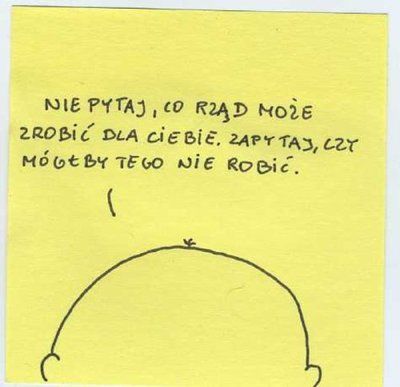 NIE PYTAJ, CO RZĄD MOŻE
ZROBIĆ DLA CIEBIE. ZAPYTAJ, CZY
MÓGŁBY TEGO NIE ROBIĆ.